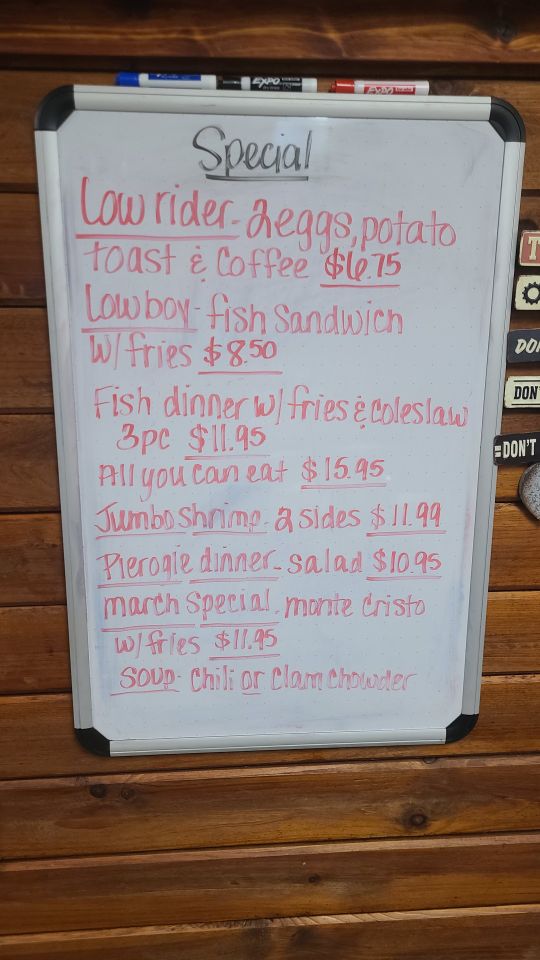 EXPO
EXPO
Special
Low rider - 2 eggs, potato
toast & Coffee $6.75
Lowboy - fish Sandwich
W/ fries $8.50
Fish dinner w/ fries & coleslaw
3pc $11.95
All you can eat $15.95
Jumbo Shrimp - 2 sides $11.99
Pierogie dinner - salad $10.95
march Special - monte Cristo
w/ fries $11.95
Soup - Chili or Clam Chowder
DON'T